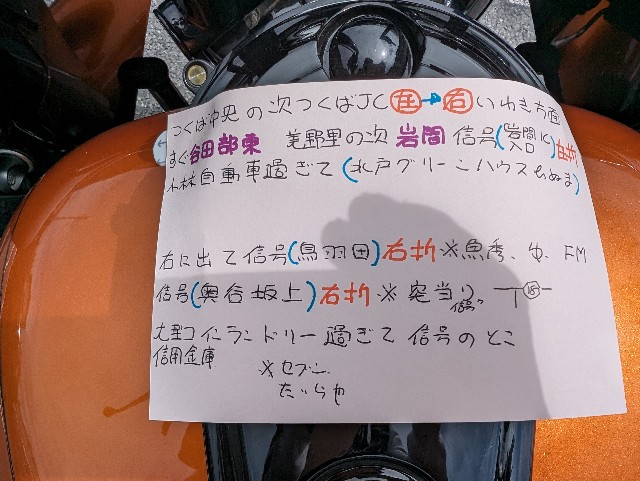 つくば中央の次つくばJC左→右いわき方面
すぐ谷田部東 美野里の次岩間信号(岩間IC入口)右折
小林自動車過ぎて(水戸グリーンハウスちぬま)
右に出て信号(鳥羽田)右折※魚秀、ゆ、FM
信号(奥谷坂上)右折※突当り信号
大型コインランドリー過ぎて信号のとこ
信用金庫
※セブン
たいらや